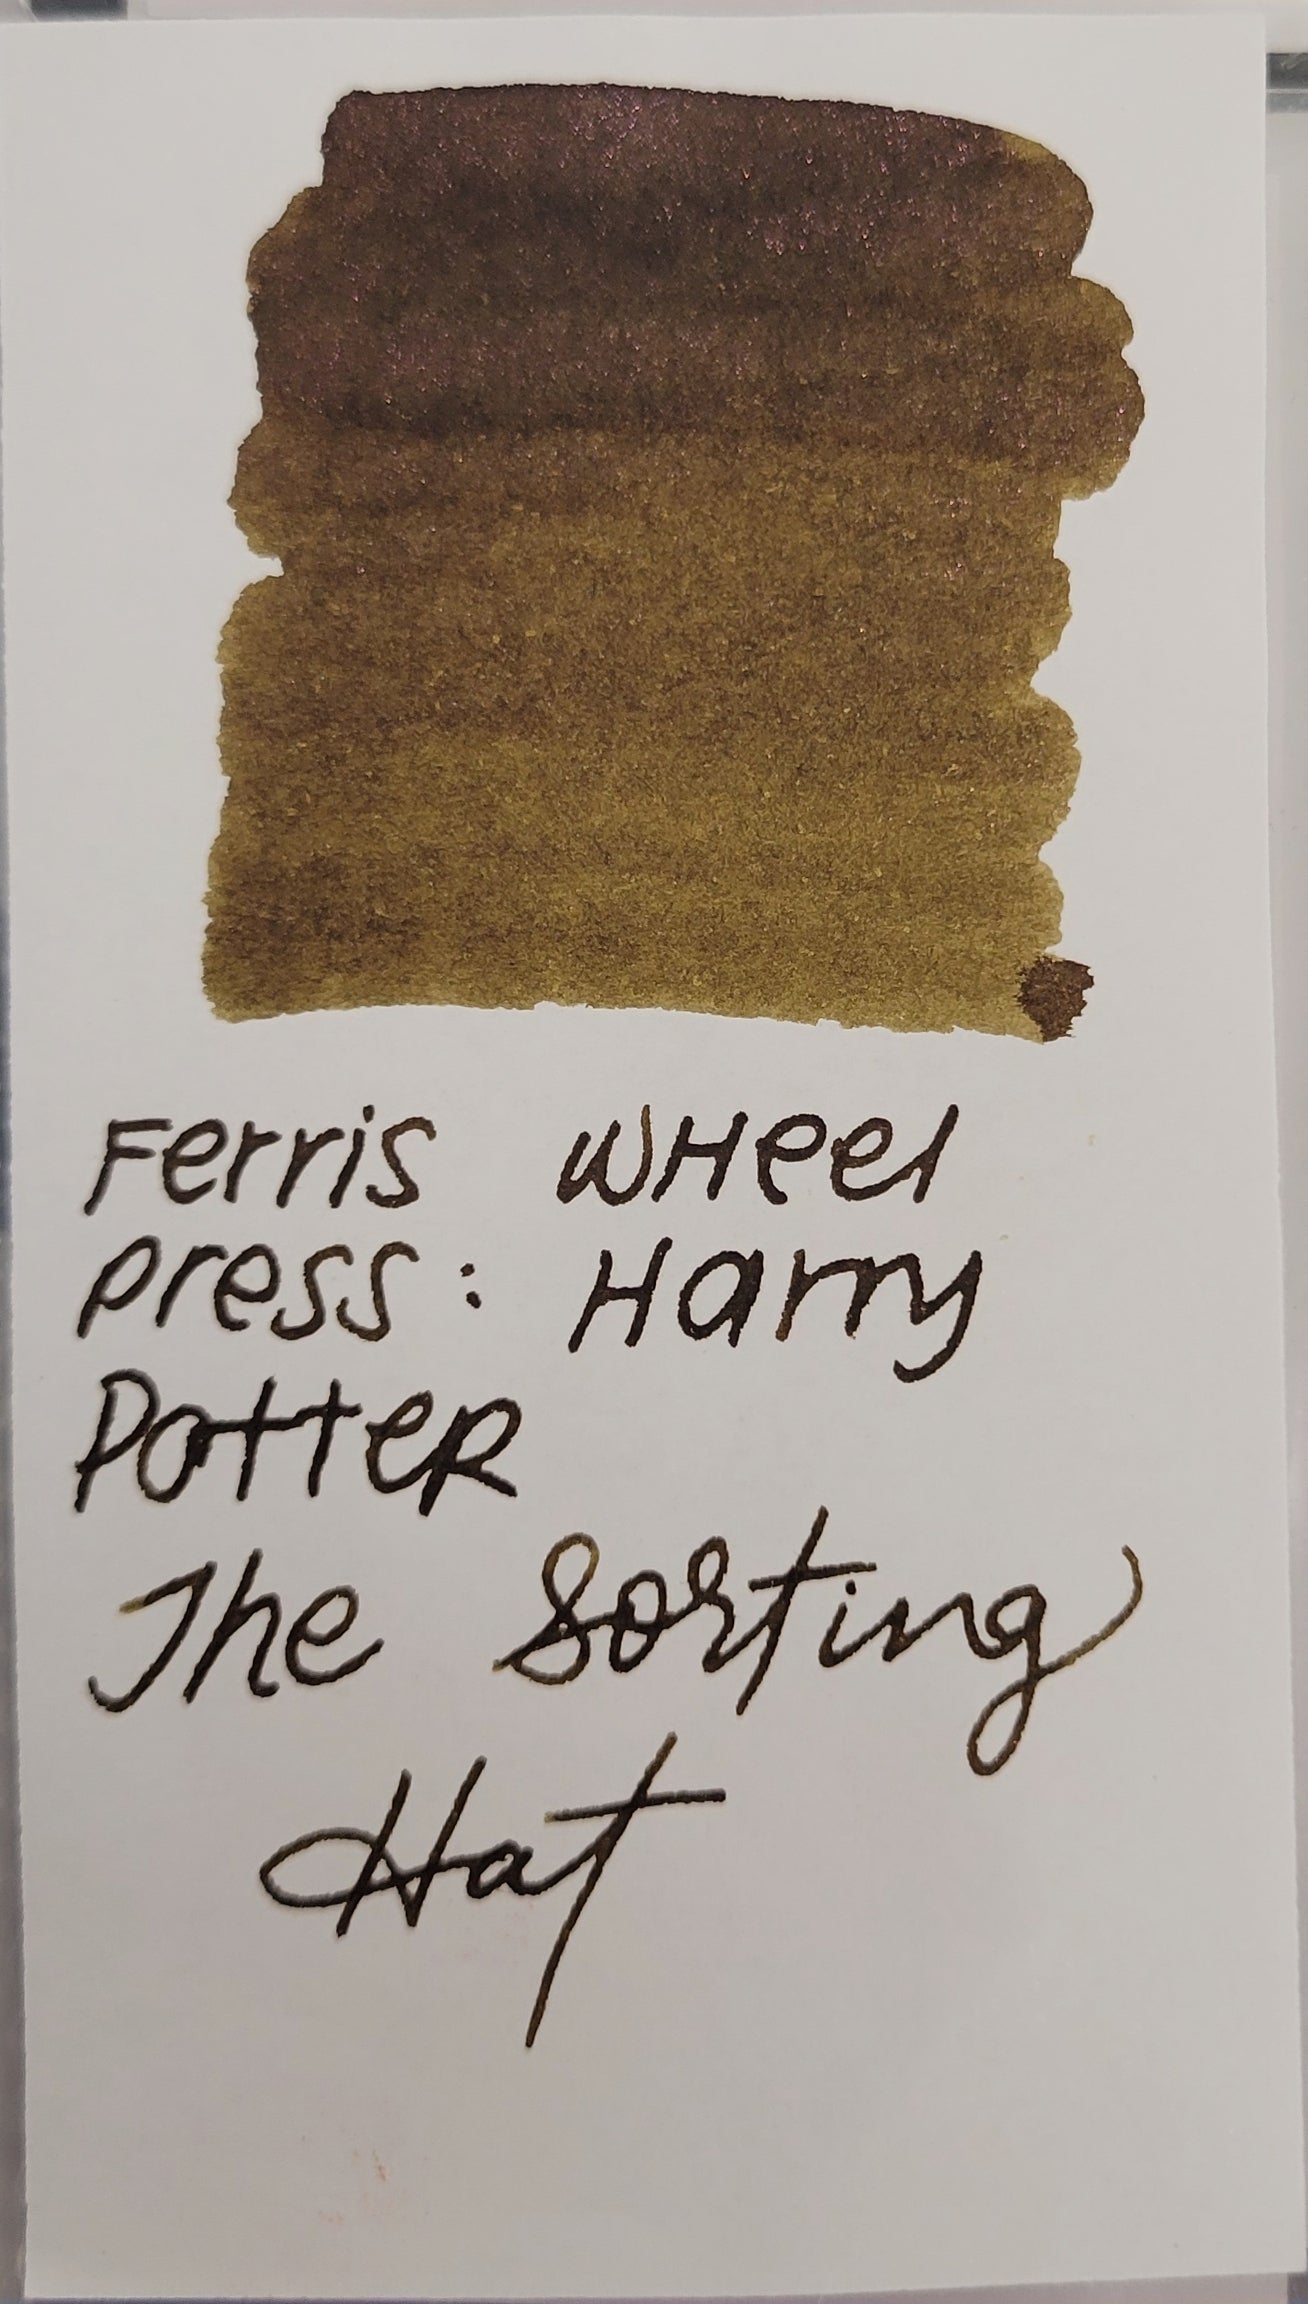 Ferris WHeel
press: Harry
PotteR
The Sorting
Hat